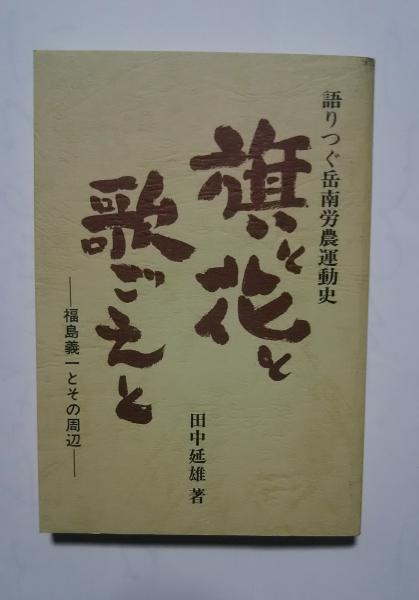 語りつぐ岳南労農運動史
旗と花と
歌ごえと
―福島義一とその周辺―
田中延雄 著